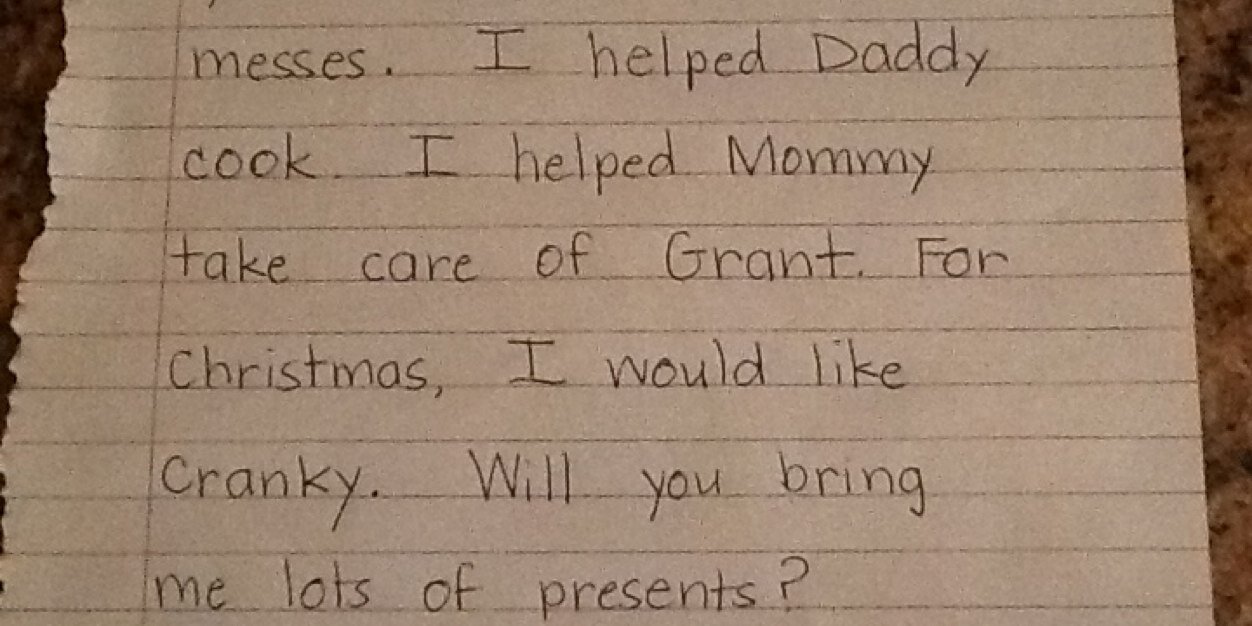 messes. I helped Daddy
cook. I helped Mommy
take care of Grant. For
Christmas, I would like
Cranky. Will you bring
me lots of presents?